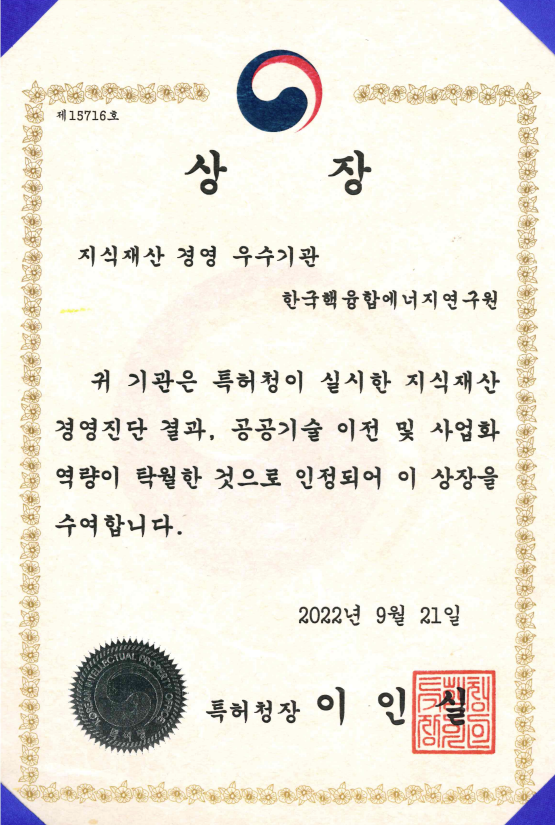 제15716호
상 장
지식재산 경영 우수기관
한국핵융합에너지연구원
귀 기관은 특허청이 실시한 지식재산
경영진단 결과, 공공기술 이전 및 사업화
역량이 탁월한 것으로 인정되어 이 상장을
수여합니다.
2022년 9월 21일
KOREAN INTELLECTUAL PROPERTY OFFICE
특허청
특허청장 이 인 실